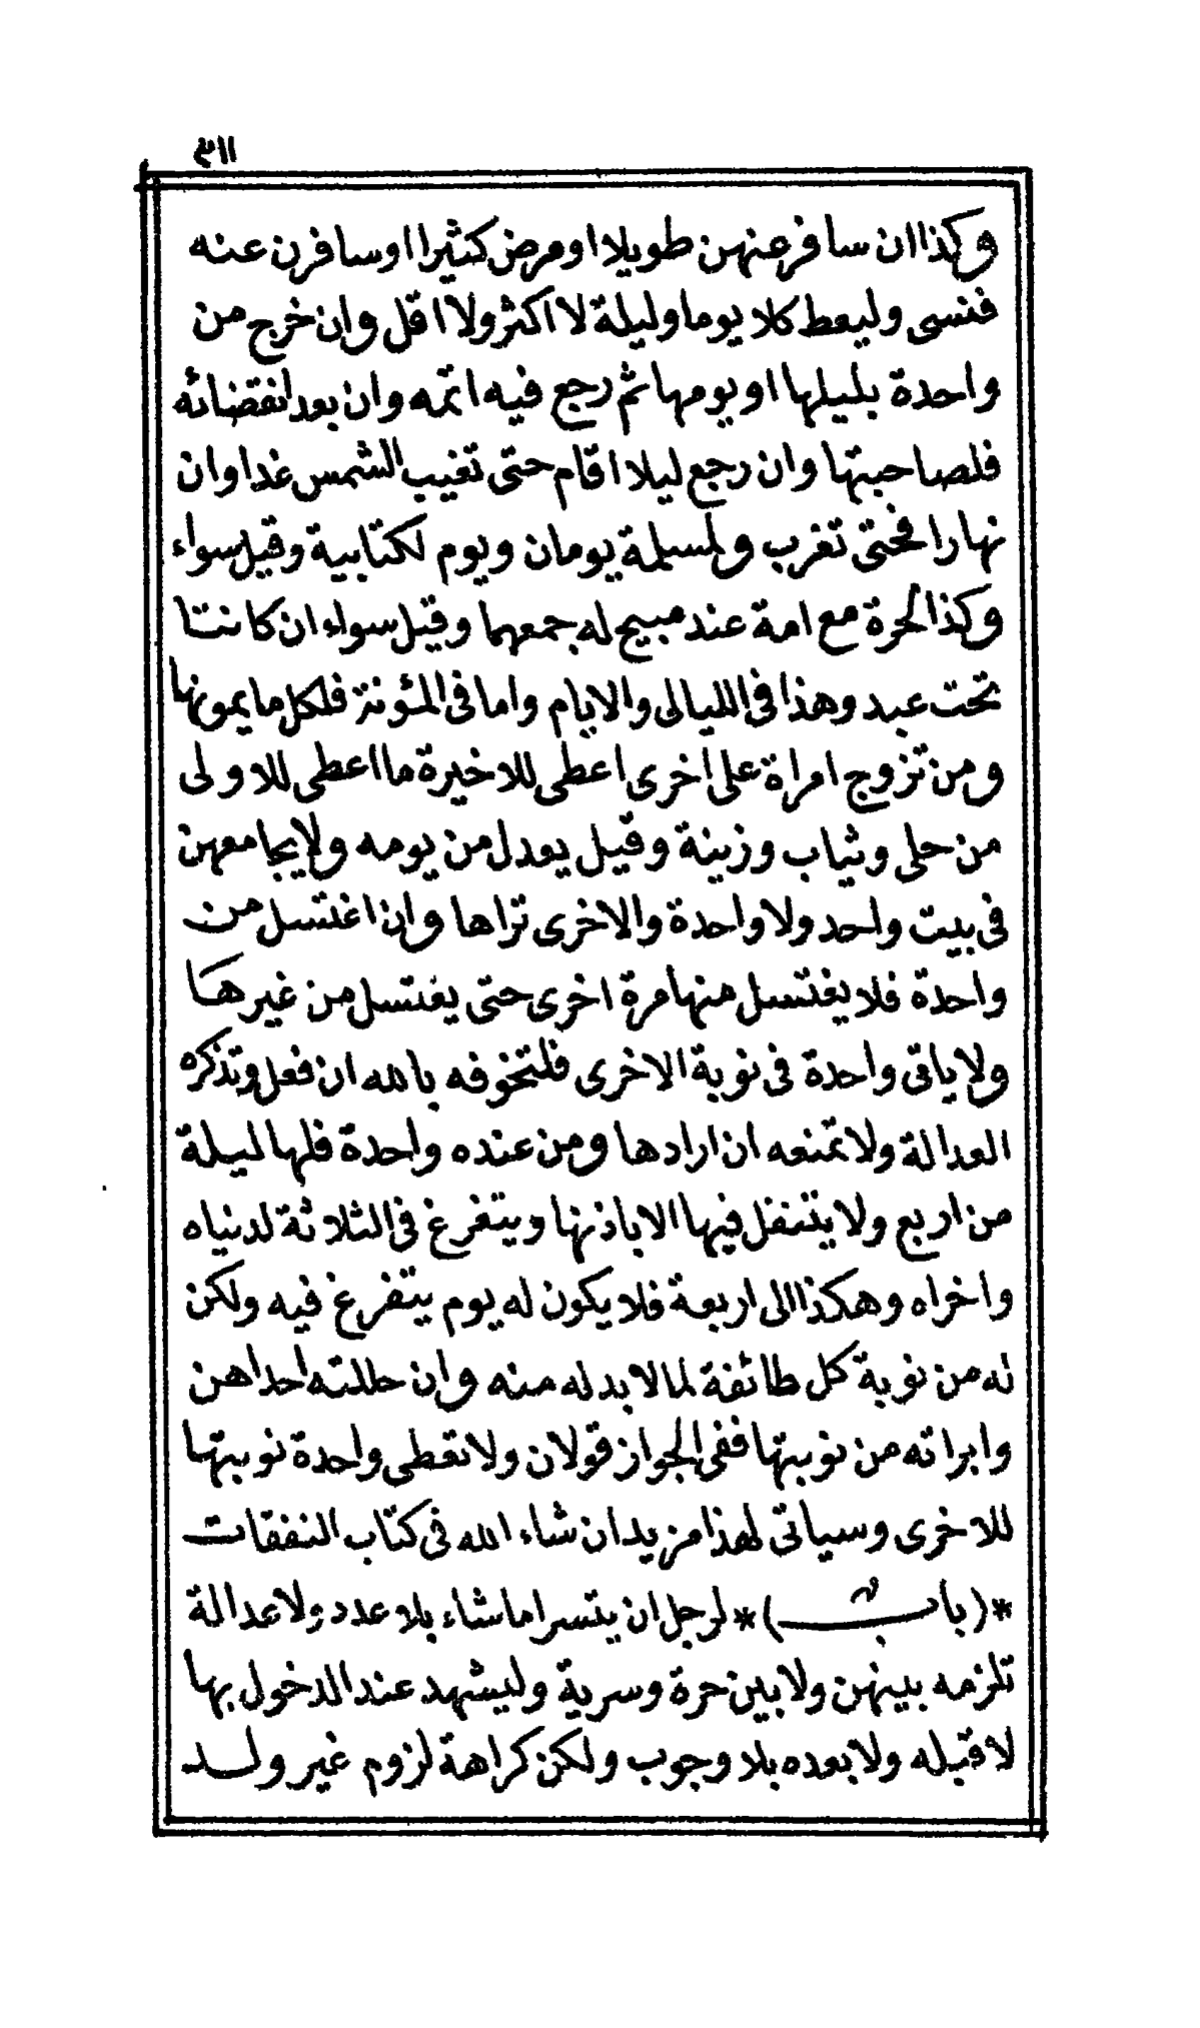 ٣١١
وكذا ان سافر عنهن طويلا او مرض كثيرا او سافرن عنه
فنسى وليعط كلا يوما وليلة لا اكثر ولا اقل وان خرج من
واحدة بليلها او يومها ثم رجع فيه اتمه وان بعد انقضائه
فلصاحبتها وان رجع ليلا اقام حتى تغيب الشمس غدا وان
نهارا فحتى تغرب ولمسلمة يومان ويوم لكتابية وقيل سواء
وكذا الحرة مع امة عند مبيح له جمعهما وقيل سواء ان كانتا
تحت عبد وهذا فى الليالى والايام واما فى المئونة فلكل ما يمونها
ومن تزوج امراة على اخرى اعطى للاخيرة ما اعطى للاولى
من حلى وثياب وزينة وقيل يعدل من يومه ولا يجامعهن
فى بيت واحد ولا واحدة والاخرى تراها وان اغتسل من
واحدة فلا يغتسل منها مرة اخرى حتى يغتسل من غيرها
ولا ياتى واحدة فى نوبة الاخرى فلتخوفه بالله ان فعل وتذكره
العدالة ولا تمنعه ان ارادها ومن عنده واحدة فلها ليلة
من اربع ولا يتنفل فيها الا باذنها ويتفرغ فى الثلاثة لدنياه
واخراه وهكذا الى اربعة فلا يكون له يوم يتفرغ فيه ولكن
له من نوبة كل طائفة لما لا بد له منه وان حللته احداهن
وابراته من نوبتها ففى الجواز قولان ولا تقطى واحدة نوبتها
للاخرى وسياتى لهذا مزيد ان شاء الله فى كتاب النفقات
*(باب)* لرجل ان يتسرا ما شاء بلا عدد ولا عدالة
تلزمه بينهن ولا بين حرة وسرية وليشهد عند الدخول بها
لا قبله ولا بعده بلا وجوب ولكن كراهة لزوم غير ولد